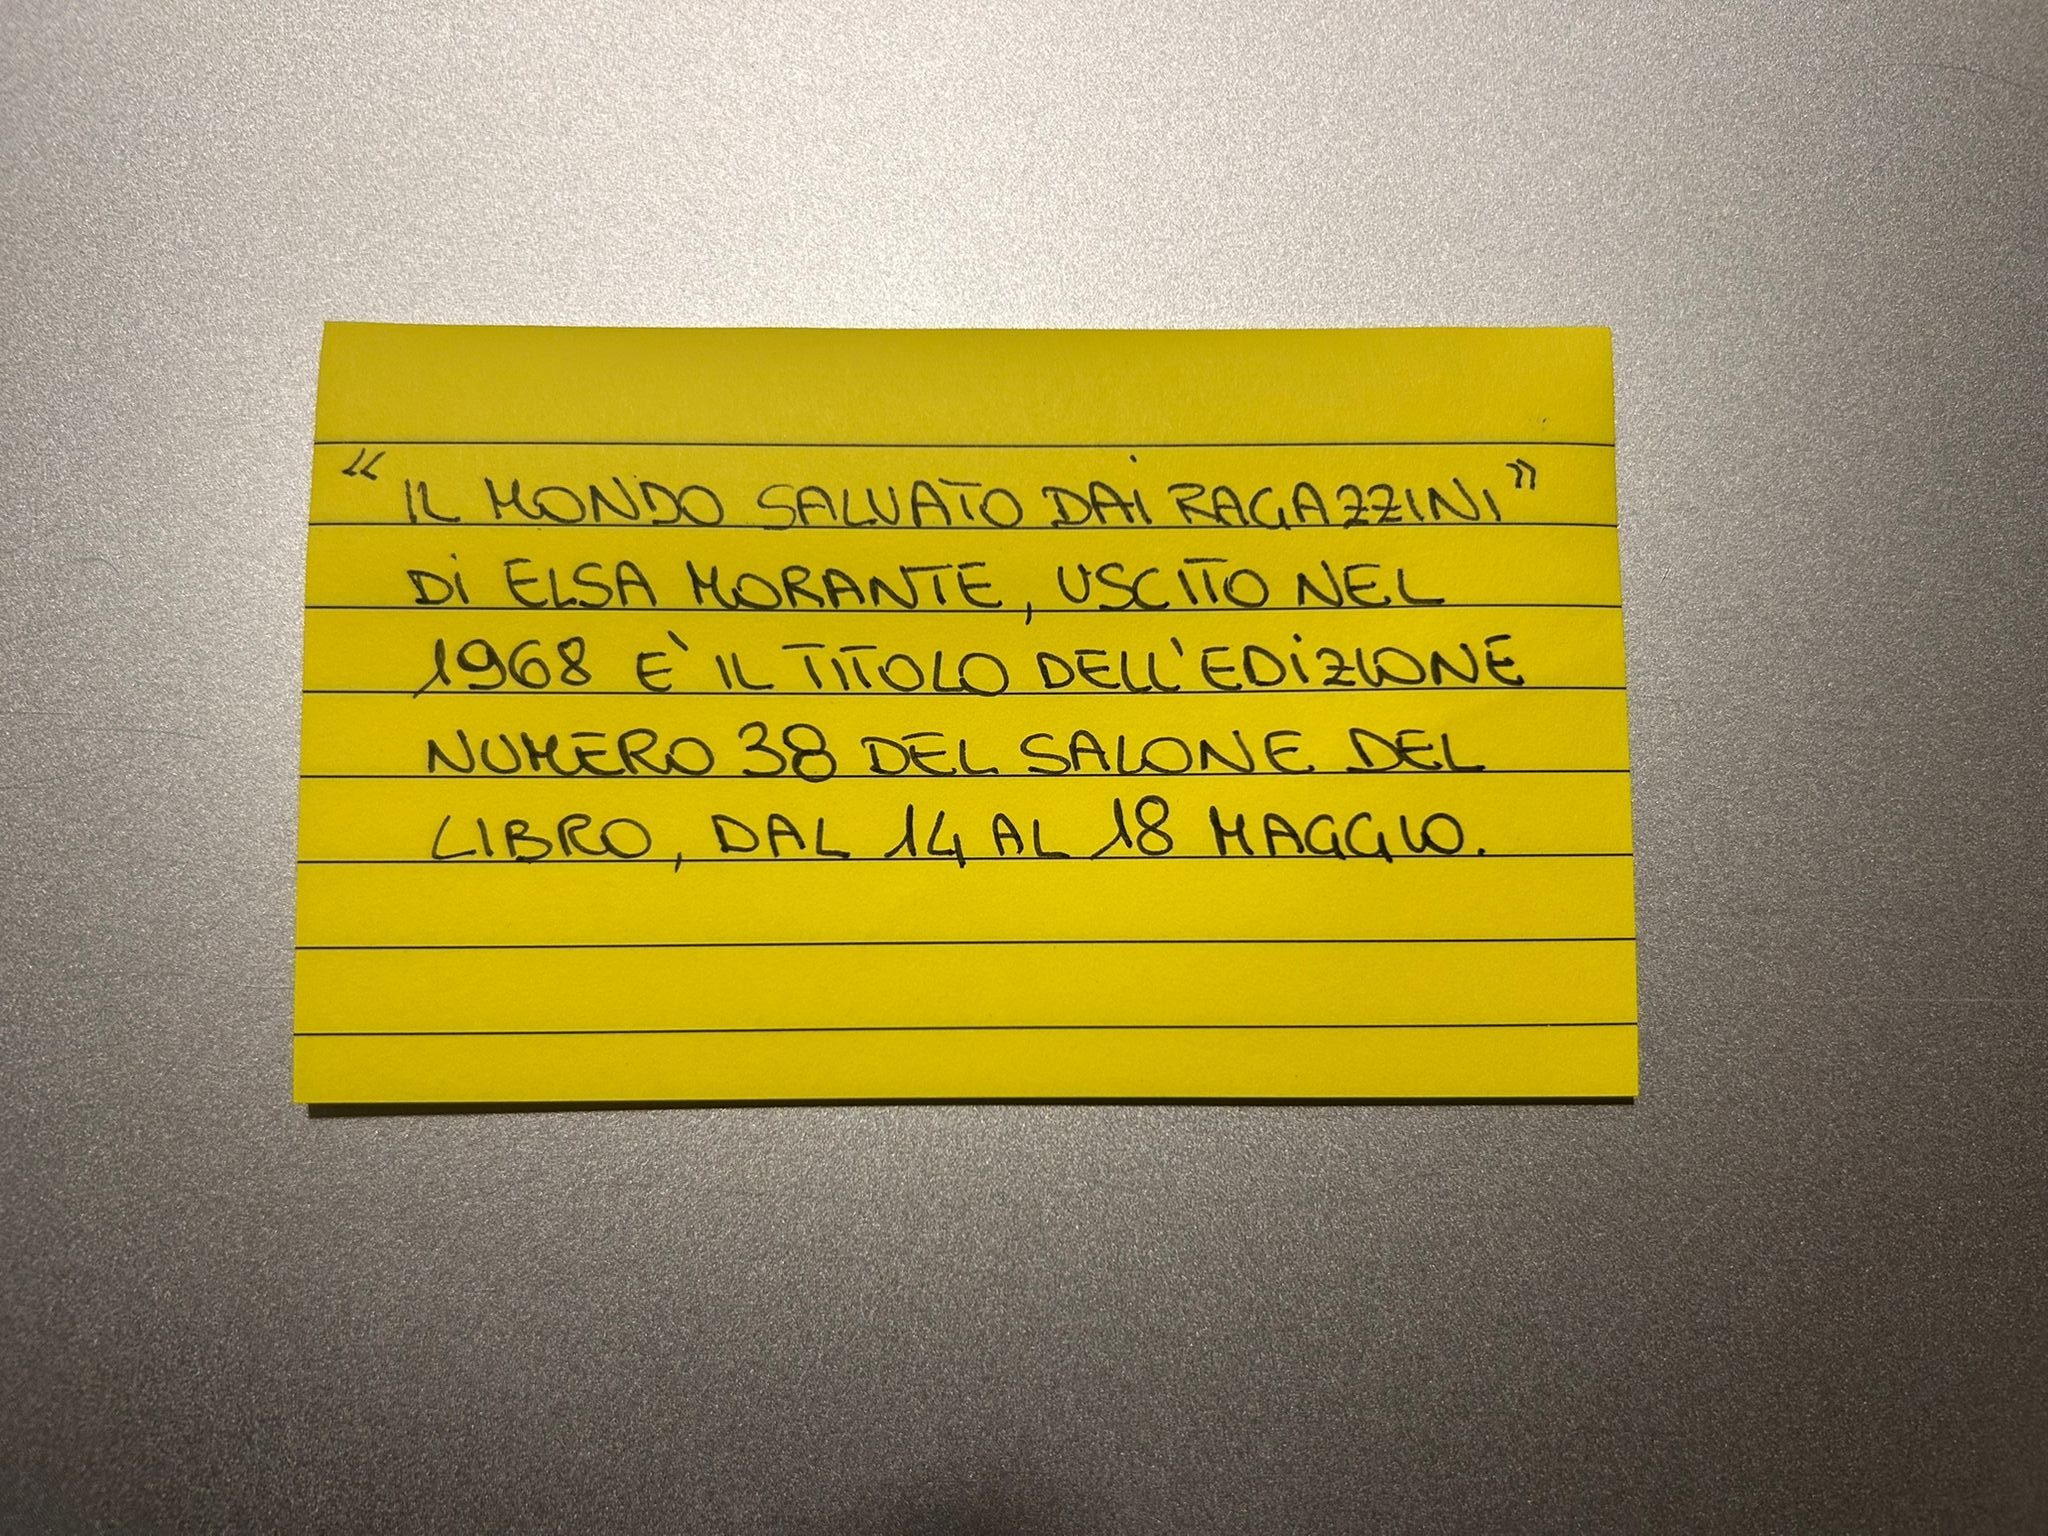 “IL MONDO SALVATO DAI RAGAZZINI”
DI ELSA MORANTE, USCITO NEL
1968 E' IL TITOLO DELL'EDIZIONE
NUMERO 38 DEL SALONE DEL
LIBRO, DAL 14 AL 18 MAGGIO.